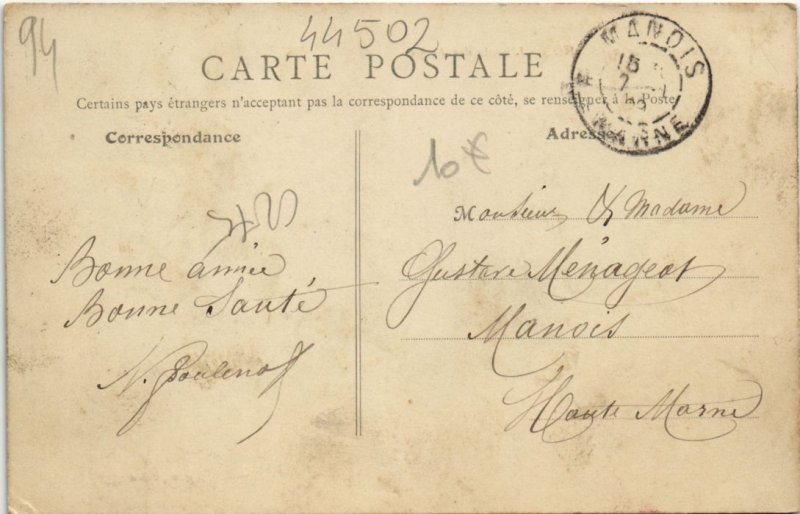 94
44502
CARTE POSTALE
Certains pays étrangers n'acceptant pas la correspondance de ce côté, se renseigner à la Poste
Correspondance
Adresse
MANOIS
15
7
HTE MARNE
10€
Bonne année
Bonne Santé
Monsieur & Madame
Gustave Ménageot
Manois
Haute Marne